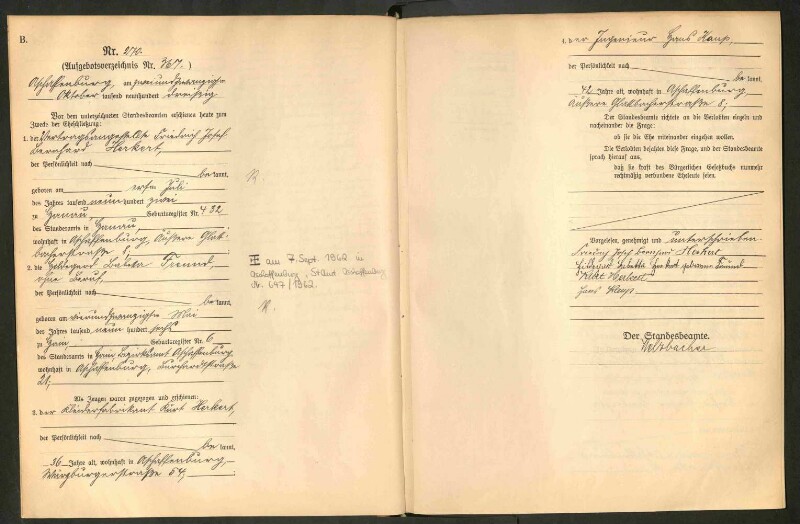 B.
Nr. 270.
(Aufgebotsverzeichnis Nr. 367.)
Aschaffenburg, am zweiundzwanzigsten
Oktober tausend neunhundert dreißig
Vor dem unterzeichneten Standesbeamten erschienen heute zum
Zwecke der Eheschließung:
1. der Vertragsangestellte Friedrich Josef
Bernhard Herkert,
der Persönlichkeit nach
be kannt,
geboren am ersten Juli
des Jahres tausend neun hundert zwei
zu Hanau, Geburtsregister Nr. 432
des Standesamts in Hanau,
wohnhaft in Aschaffenburg, Äußere Glat-
bacherstraße
2. die Hildegard Babetta Freund,
ohne Beruf,
der Persönlichkeit nach
be kannt,
geboren am vierundzwanzigsten Mai
des Jahres tausend neun hundert sechs
zu Geburtsregister Nr. 6
des Standesamts in Bezirksamt Aschaffenburg,
wohnhaft in Aschaffenburg,
21;
Als Zeugen waren zugezogen und erschienen:
3. der Kleiderfabrikant Kurt Herkert,
der Persönlichkeit nach
be kannt,
36 Jahre alt, wohnhaft in Aschaffenburg,
Würzburgerstraße 54,
am 7. Sept. 1962 in
Aschaffenburg, St.Amt Aschaffenburg
Nr. 647/1962.
4. der Ingenieur Hans
der Persönlichkeit nach
be kannt,
42 Jahre alt, wohnhaft in Aschaffenburg,
Äußere Glattbacherstraße 8;
Der Standesbeamte richtete an die Verlobten einzeln und
nacheinander die Frage:
ob sie die Ehe miteinander eingehen wollen.
Die Verlobten bejahten diese Frage, und der Standesbeamte
sprach hierauf aus,
daß sie kraft des Bürgerlichen Gesetzbuchs nunmehr
rechtmäßig verbundene Eheleute seien.
Vorgelesen, genehmigt und unterschrieben
Friedrich Josef Bernhard Herkert
Hildegard Babetta Herkert geborene Freund
Kurt Herkert
Hans
Der Standesbeamte.
Welzbacher